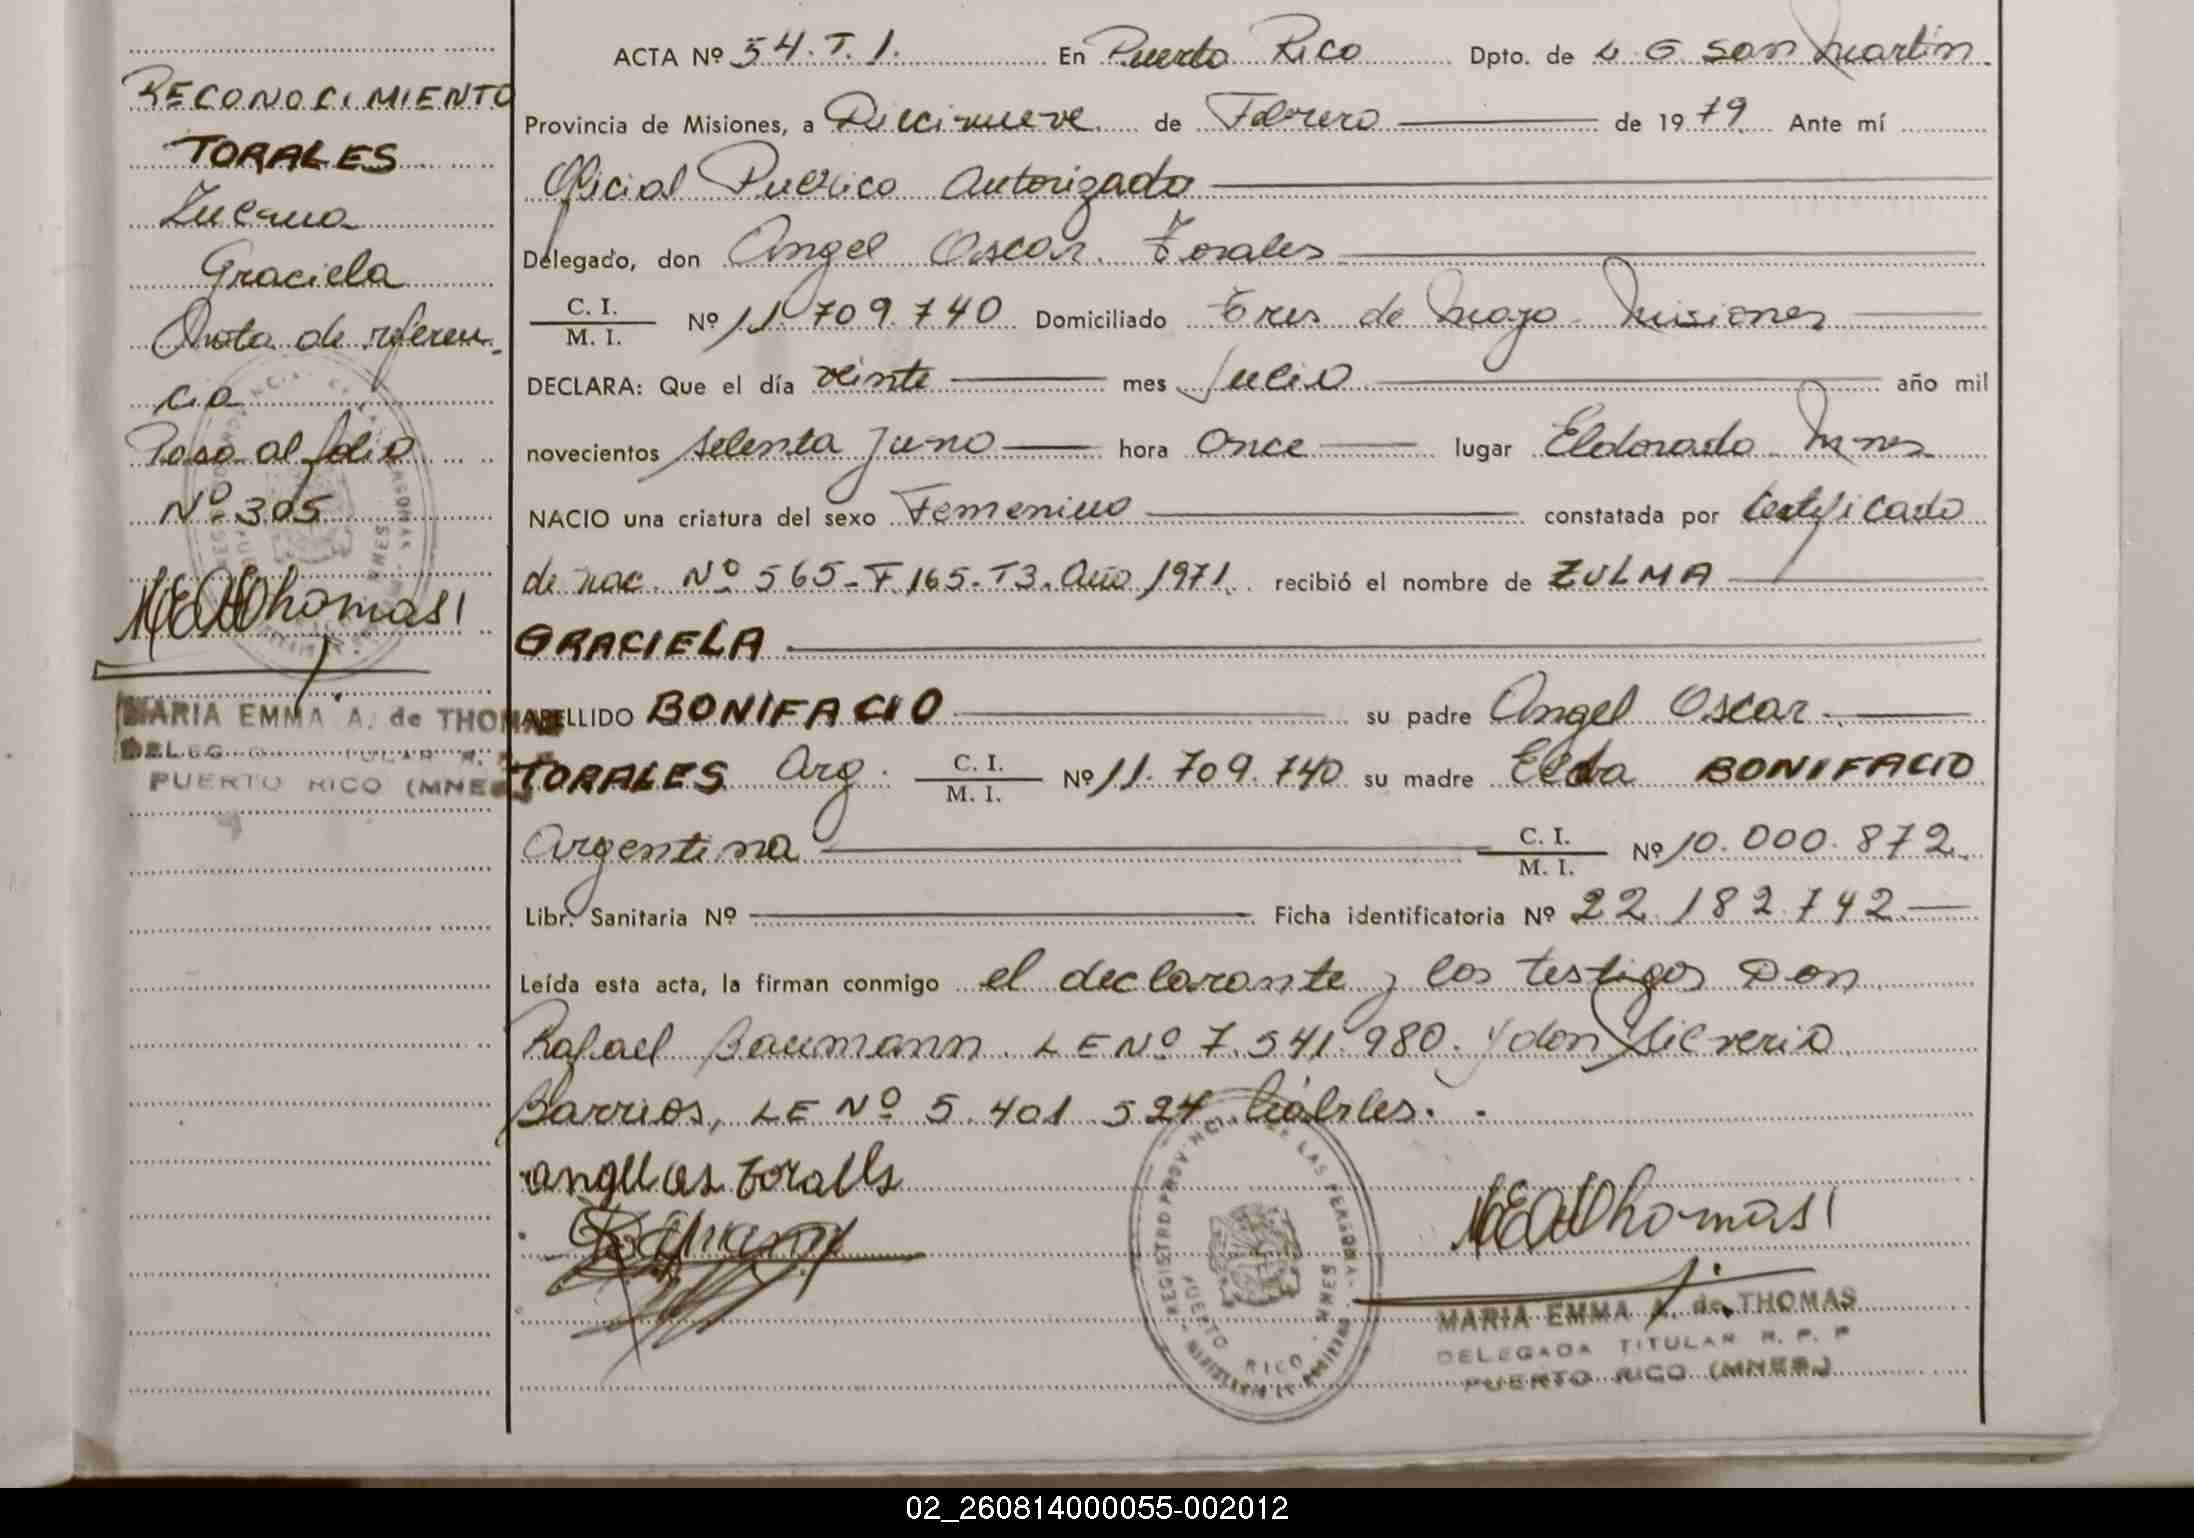 RECONOCIMIENTO
TORALES
Zulma
Graciela
Nota de referen-
cia
Pasa al folio
Nº 305
MEAdeThomas
MARIA EMMA A. de THOMAS
PUERTO RICO (MNES.)
ACTA Nº 54. T. 1. En Puerto Rico Dpto. de L. G. San Martín
Provincia de Misiones, a Diecinueve de Febrero de 1979 Ante mí
Oficial Publico Autorizado
Delegado, don Angel Oscar Torales
C. I. / M. I. Nº 11.709.740 Domiciliado Tres de Mayo Misiones
DECLARA: Que el día veinte mes Julio año mil
novecientos setenta y uno hora Once lugar Eldorado Mnes
NACIO una criatura del sexo Femenino constatada por Certificado
de nac. Nº 565-F.165-T3. Año 1971. recibió el nombre de ZULMA
GRACIELA
APELLIDO BONIFACIO su padre Angel Oscar
TORALES Arg. C. I. / M. I. Nº 11.709.740 su madre Elda BONIFACIO
Argentina C. I. / M. I. Nº 10.000.872
Libr. Sanitaria Nº Ficha identificatoria Nº 22.182.742
Leída esta acta, la firman conmigo el declarante y los testigos Don
Rafael Baumann LE Nº 7.541.980. y don Silverio
Barrios, LE Nº 5.401.524 hábiles.
angel os torales
MEAdeThomas
REGISTRO PROVINCIAL DE LAS PERSONAS
PUERTO RICO MNES.
MINISTERIO DE GOBIERNO
MARIA EMMA A. de THOMAS
DELEGADA TITULAR R. P. P
PUERTO RICO (MNES.)
02_260814000055-002012